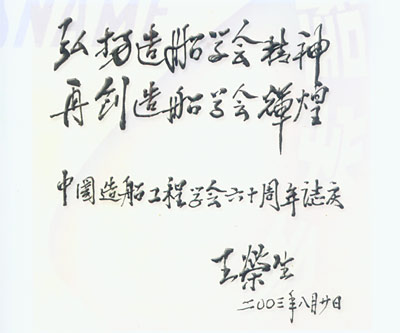 弘扬造船学会精神
再创造船学会辉煌
中国造船工程学会六十周年誌庆
王榮生
二〇〇三年八月廿日